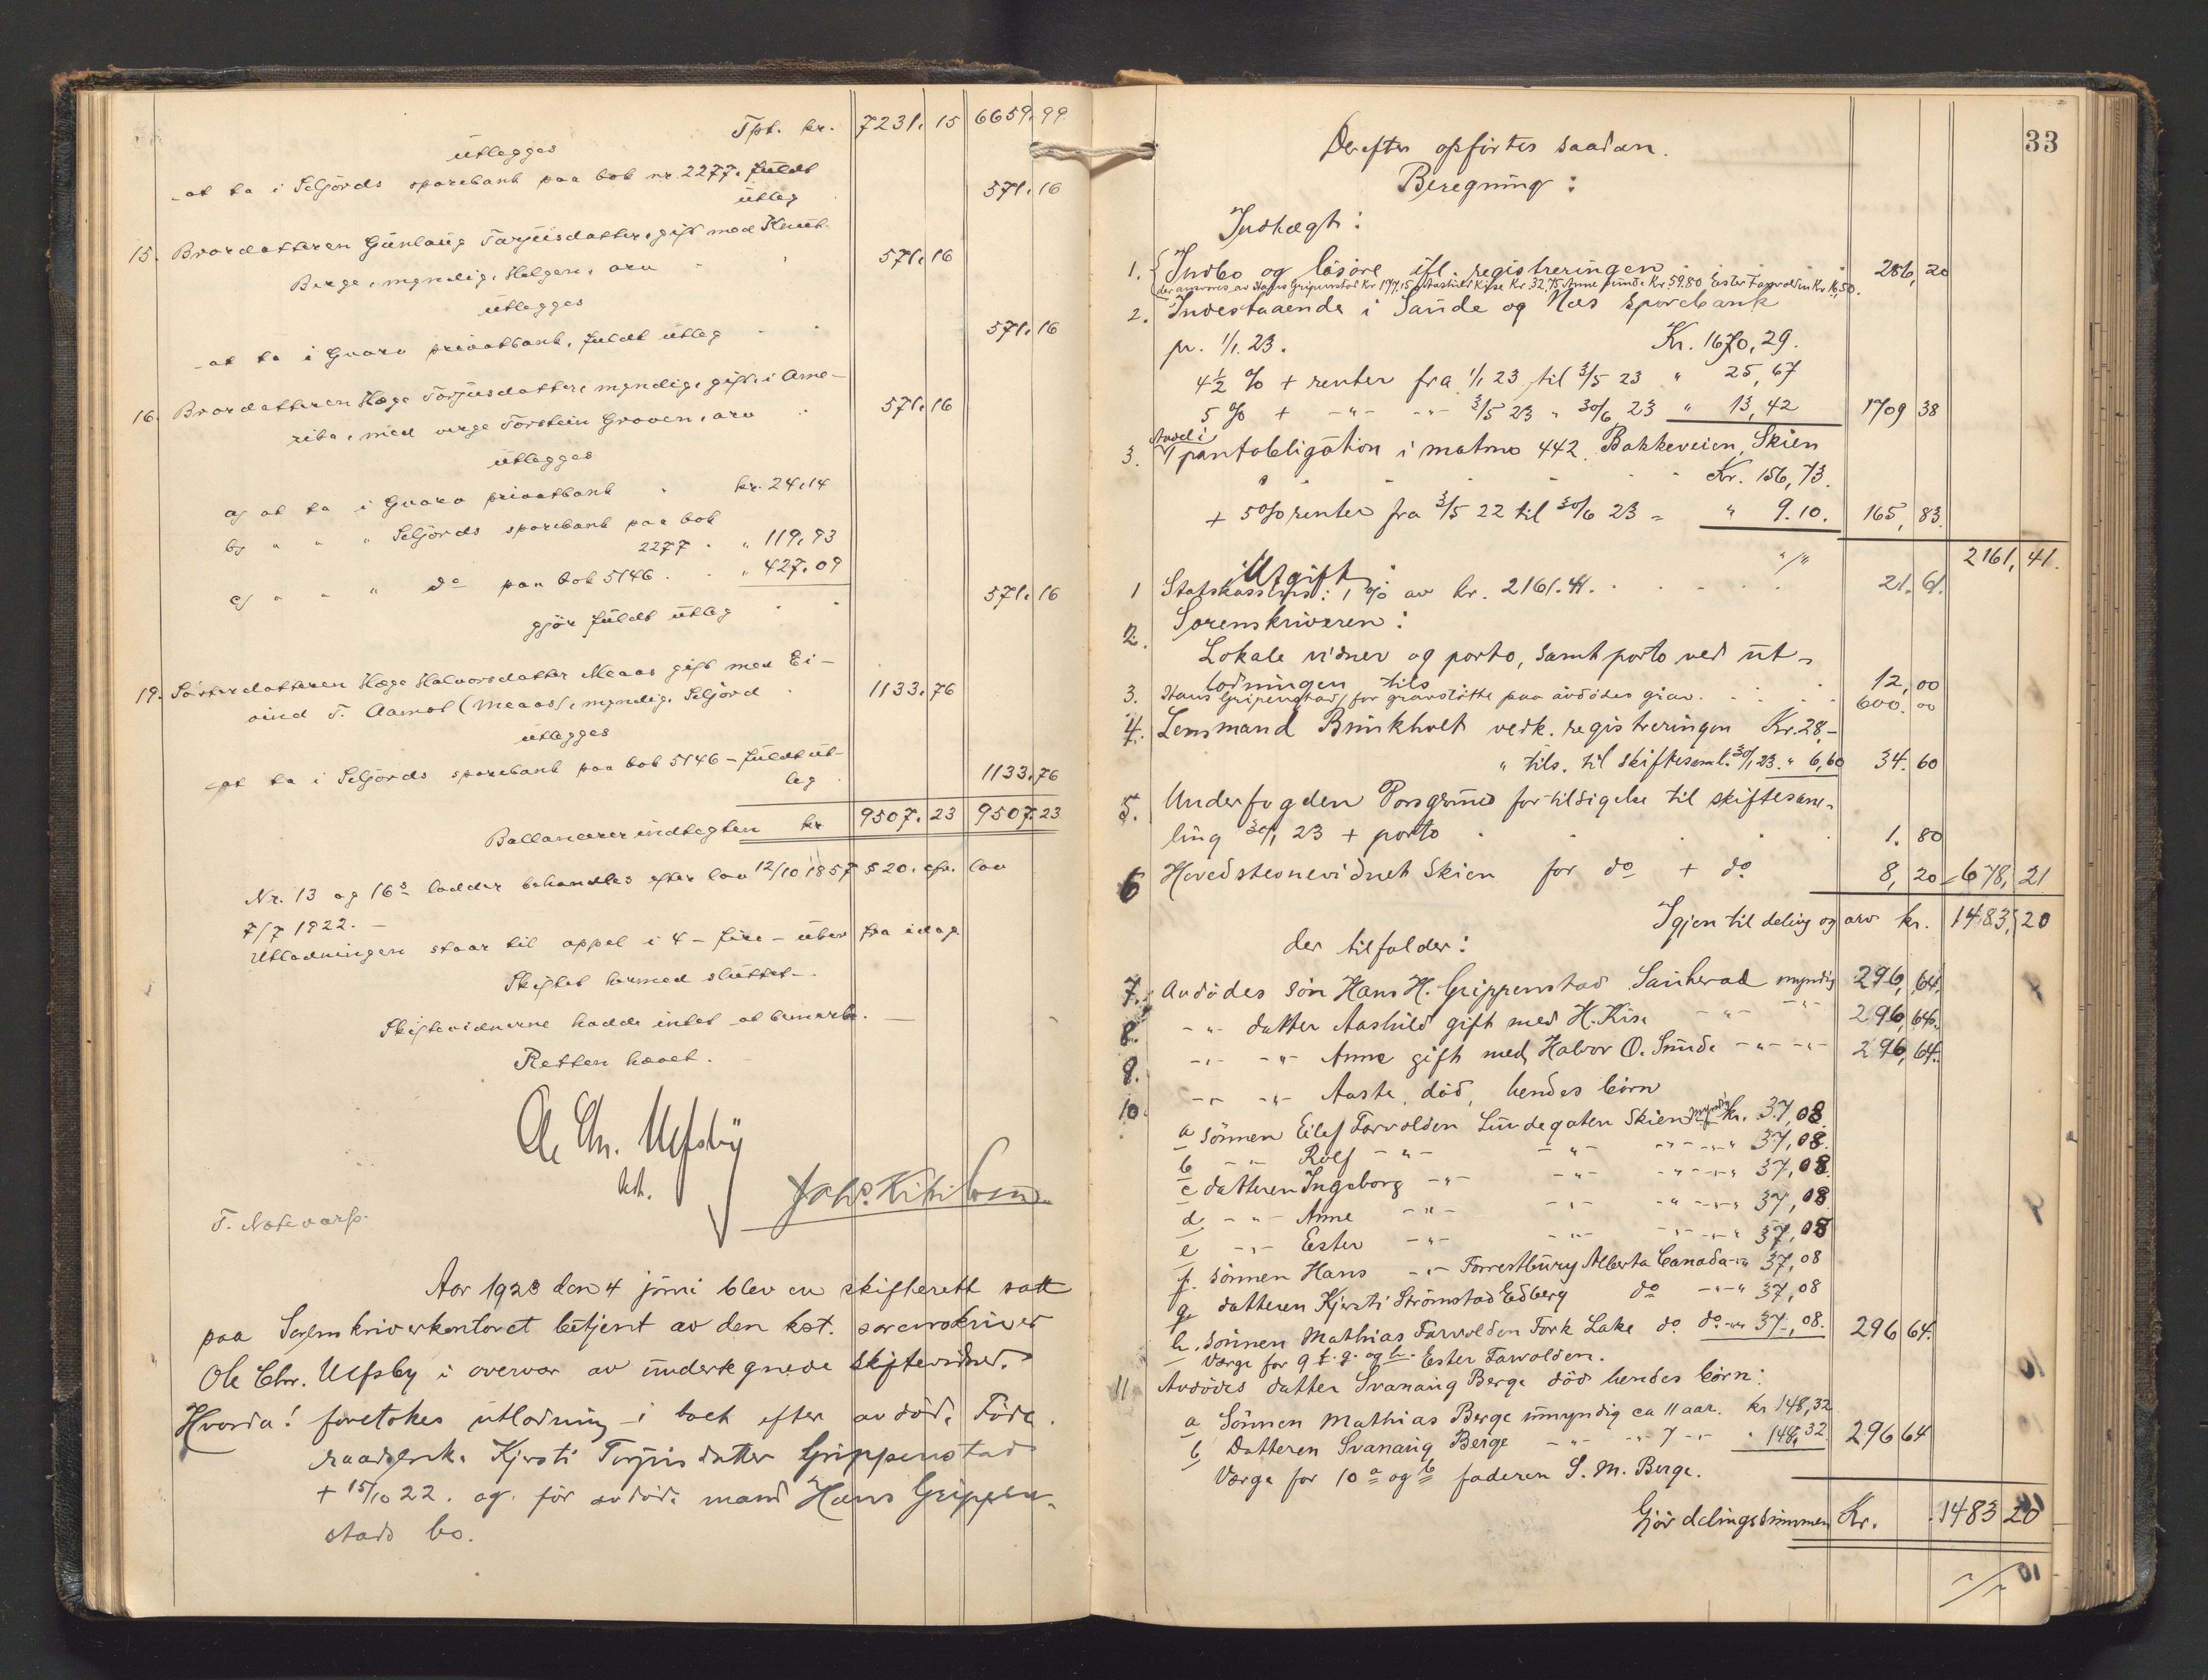 Tpt. kr. 7231. 15 6659. 99
utlegges
- at ta i Seljords sparebank paa bok nr. 2277. Fuldt
utleg 571. 16
15. Brordatteren Gunlaug Tarjeisdatter, gift med Knut
Berge, myndig, Helgen, arv 571. 16
utlegges
- at ta i Gvarv privatbank, fuldt utleg 571. 16
16. Brordatteren Hæge Torjusdatter, myndig, gift i Ame-
rika, med verge Torstein Groven, arv 571. 16
utlegges
a) at ta i Gvarv privatbank kr. 24,14
b) " " " Seljords sparebank paa bok
2277 " 119,93
c) " " " do paa bok 5146 . " 427,09
gjör fuldt utleg 571. 16
19. Sösterdatteren Hæge Halvorsdatter Meaas gift med Ei-
vind T. Aamot (Meaas), myndig, Seljord 1133. 76
utlegges
- at ta i Seljords sparebank paa bok 5146 - Fuldt ut-
leg 1133. 76
Ballancerer indtegten kr 9507. 23 9507. 23
Nr. 13 og 16s lodder behandles efter lov 12/10 1857 § 20, cfr. lov
7/7 1922. -
Utlodningen staar til appel i 4 - fire - uker fra idag.
Skiftet hermed sluttet. -
Skiftevidnerne hadde intet at bemerke. -
Retten hævet.
O. Chr. Ulfsby
kst.
T. Notevarp.
Aar 1923 den 4 juni blev en skifterett satt
paa Sorenskriverkontoret betjent av den kst. sorenskriver
Ole Chr. Ulfsby i overvær av undertegnede skiftevidner.
Hvorda! foretokes utlodning i boet efter avdöde Föde-
raadsenke Kjersti Torjusdatter Grippenstad
+ 15/10 22. og för avdöde mand Hans Grippen-
stads bo.
33
Derefter opförtes saadan
Beregning:
Indtægt:
1. Indbo og lösöre ifl. registreringen 286, 20
der ansvares av Hans Gripenstad Kr 177,15 Aashild Kise Kr. 32,75 Anne Sunde Kr. 59.80 Ester Farvolden Kr. 16,50.
2. Indestaaende i Saude og Nes Sparebank
pr. 1/1. 23. Kr. 1670,29.
4½ % + renter fra 1/1 23 til 3/5 23 " 25,67
5 % + -"- -"- 3/5 23 " 30/6 23 " 13,42 1709 38
3. Andel i pantobligation i matrno 442 Bakkeveien, Skien
Kr. 156,73.
+ 5% renter fra 3/5 22 til 30/6 23 = " 9.10. 165, 83.
"/" 2161, 41.
Utgift:
1 Statskassens: 1 % av kr. 2161.41. 21. 61.
2. Sorenskriveren:
Lokale vidner og porto, samt porto ved ut-
lodningen tils 12, 00
3. Hans Gripenstad, for gravstötte paa avdödes grav. 600. 00
4. Lensmand Brinkholt verk. registreringen Kr. 28,-
" tils. til skiftesaml. 30/1 23. " 6,60 34. 60
5. Underfogden Porsgrund for tilsigelse til skiftesam-
ling 30/1 23 + porto 1. 80
6 Hovedstevnevidnet Skien for do + do 8, 20 - 678, 21
Igjen til deling og arv kr. 1483, 20
der tilfalder:
7. Avdödes sön Hans H. Grippenstad Sauherad myndig 296, 64.
8. -"- datter Aashild gift med H. Kise -"- -"- 296, 64.
9. -"- -"- Anne gift med Halvor O. Sunde -"- -"- 296, 64.
10 -"- -"- Aaste, död, hendes börn
a Sönnen Eilef Farvolden Lundegaten Skien myndig kr. 37,08.
b -"- Rolf -"- -"- -"- -"- 37,08.
c datteren Ingeborg -"- -"- -"- -"- 37,08
d -"- Anne -"- -"- -"- -"- 37,08
e -"- Ester -"- -"- -"- -"- 37,08
f. sönnen Hans -"- Forrestbury Alberta Canada -"- 37,08
g. datteren Kjersti Strömstad Edberg do -"- 37,08
h. sönnen Mathias Farvolden Fork Lake do. do -"- 37,08. 296 64.
Værge for 9 f. g. og h. Ester Farvolden.
11 Avdödes datter Svanaug Berge död hendes börn:
a Sönnen Mathias Berge umyndig ca 11 aar. kr 148,32
b Datteren Svanaug Berge -"- -"- 7 -"- " 148,32. 296 64
Værge for 10 a og b faderen S. M. Berge.
Gjör delingssummen Kr. 1483 20